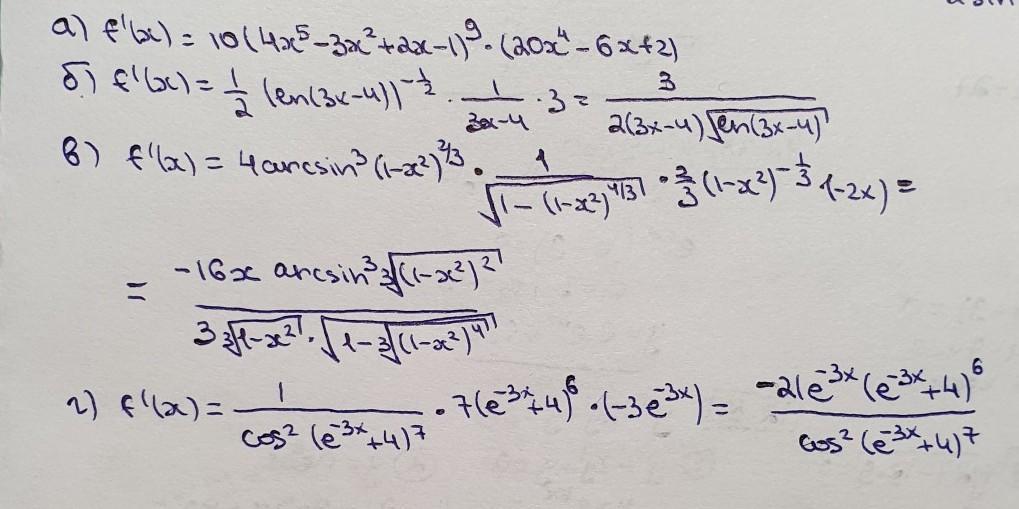 а) f'(x) = 10(4x⁵-3x²+2x-1)⁹·(20x⁴-6x+2)
б) f'(x) = 1/2 (ln(3x-4))^(-1/2) · 1/(3x-4) · 3 = 3/(2(3x-4)√(ln(3x-4)))
в) f'(x) = 4arcsin³(1-x²)^(2/3) · 1/√(1-(1-x²)^(4/3)) · 2/3 (1-x²)^(-1/3) · (-2x) =
= (-16x arcsin³ ∛((1-x²)²))/(3 ∛(1-x²) · √(1-∛((1-x²)⁴)))
г) f'(x) = 1/(cos²(e^(-3x)+4)⁷) · 7(e^(-3x)+4)⁶ · (-3e^(-3x)) = (-21e^(-3x)(e^(-3x)+4)⁶)/(cos²(e^(-3x)+4)⁷)